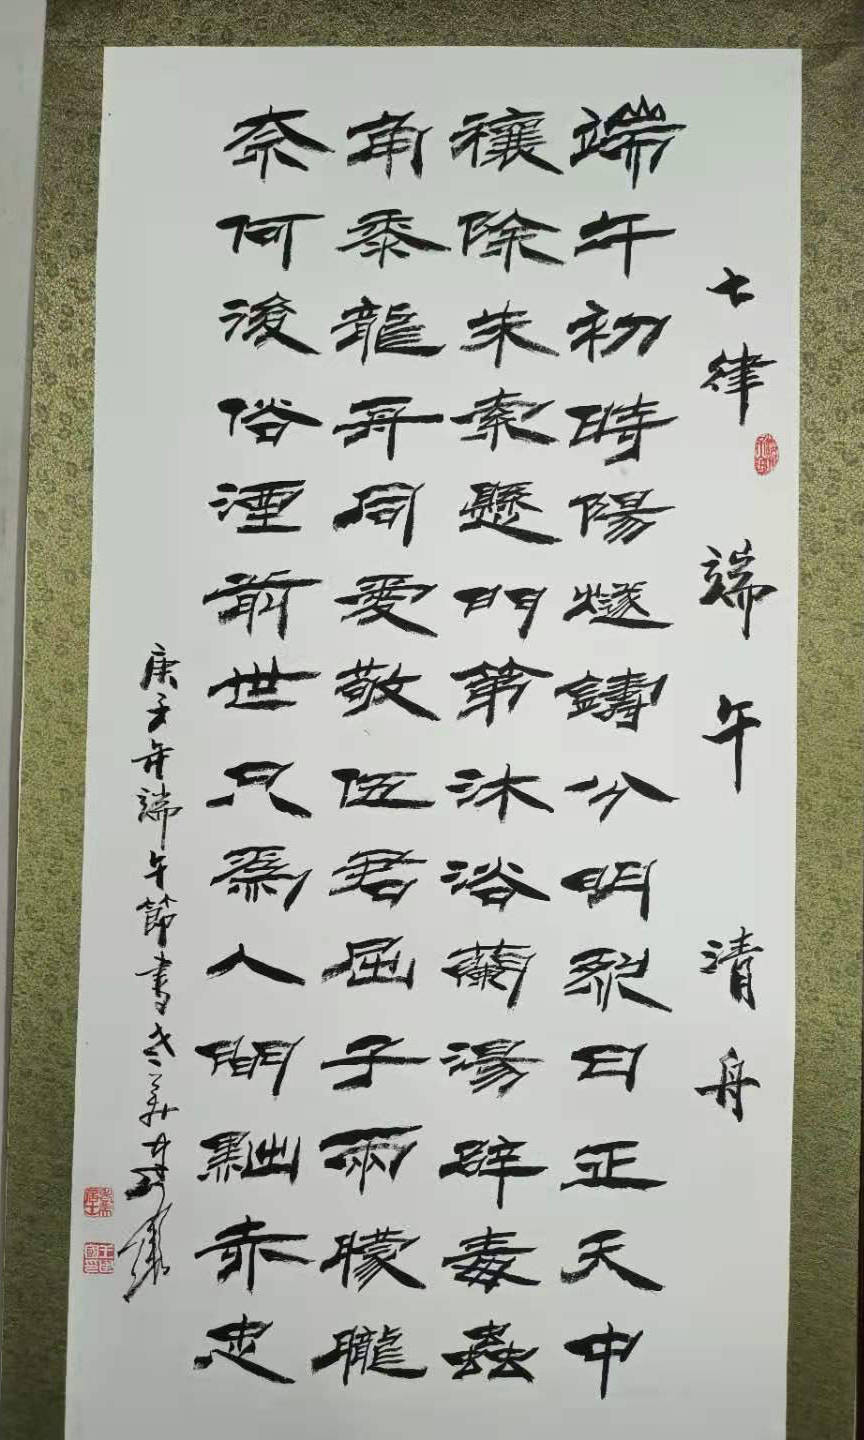 七律 端午 清舟
端午初時陽燧鑄分明烈日正天中
禳除朱索懸門第沐浴蘭湯辟毒蟲
角黍龍舟同愛敬伍君屈子兩朦朧
奈何後俗湮前世只為人間黜赤忠
庚子年端午節書